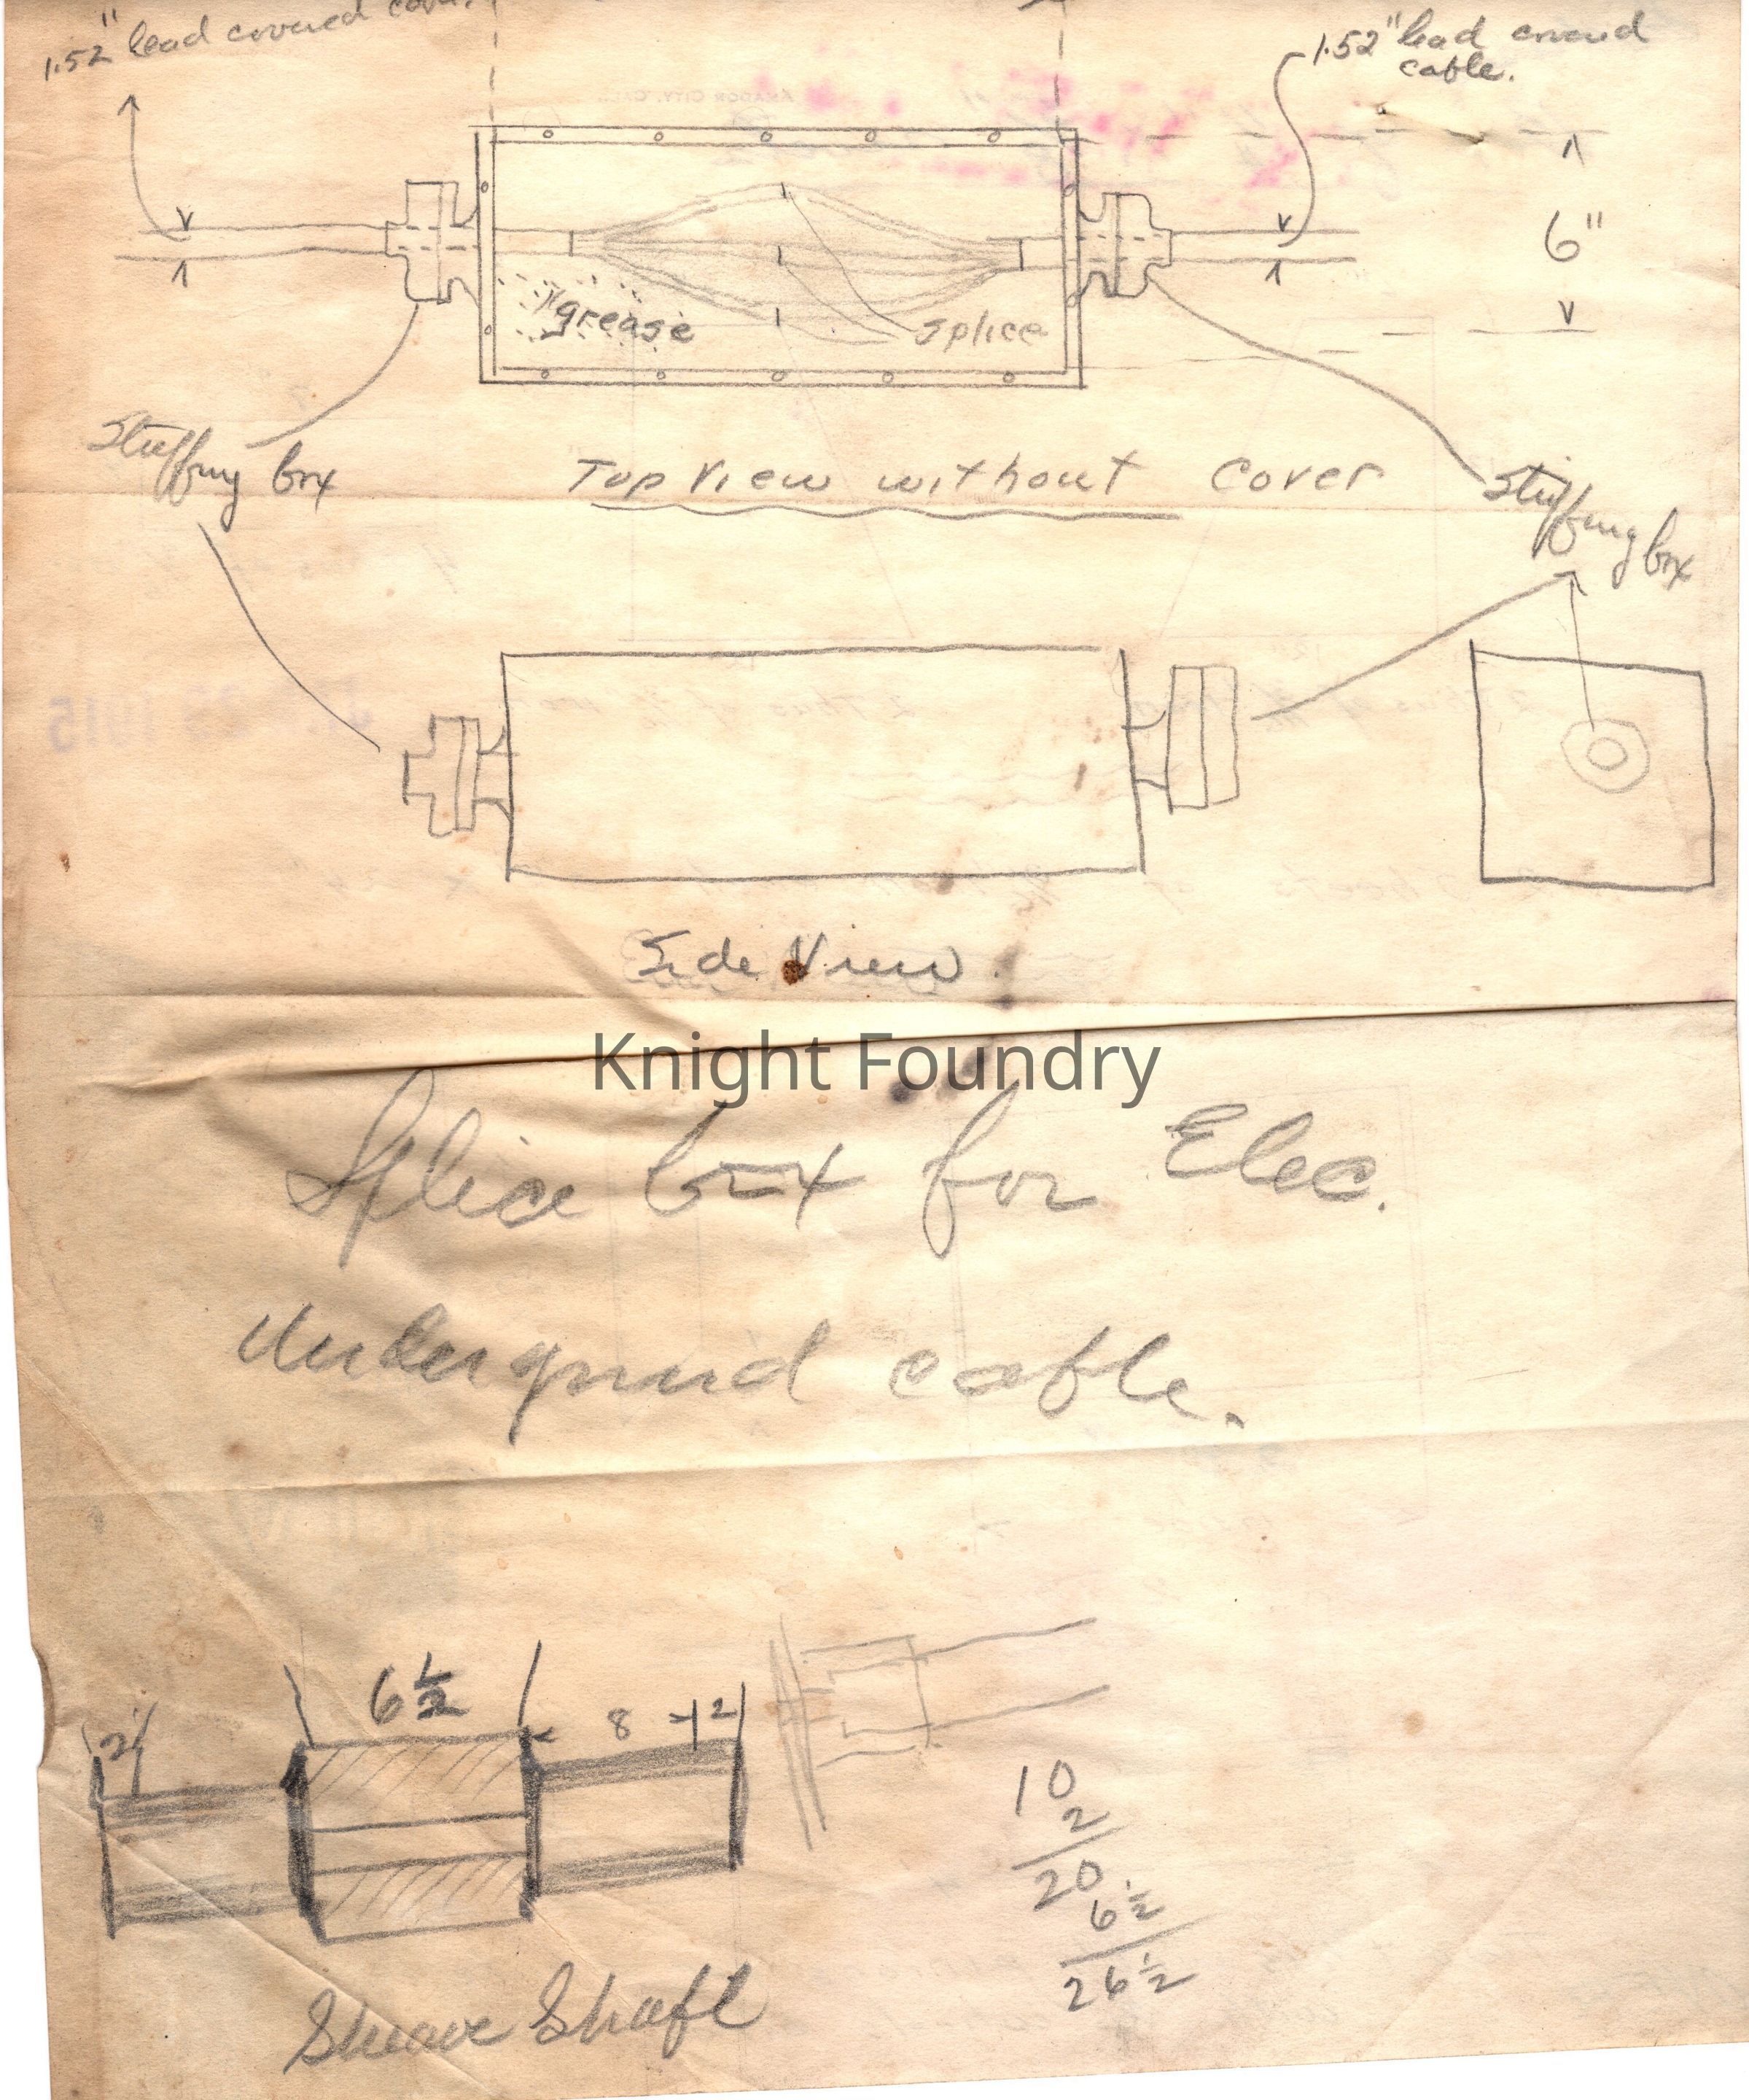 1.52" lead covered
1.52" lead covered
cable.
6"
grease
splice
Stuffing box
Top View without Cover
Stuffing box
Side View
Knight Foundry
Splice box for Elec.
Underground cable.
6 1/2
2
8
2
10
2
20
6 1/2
26 1/2
Sheave Shaft